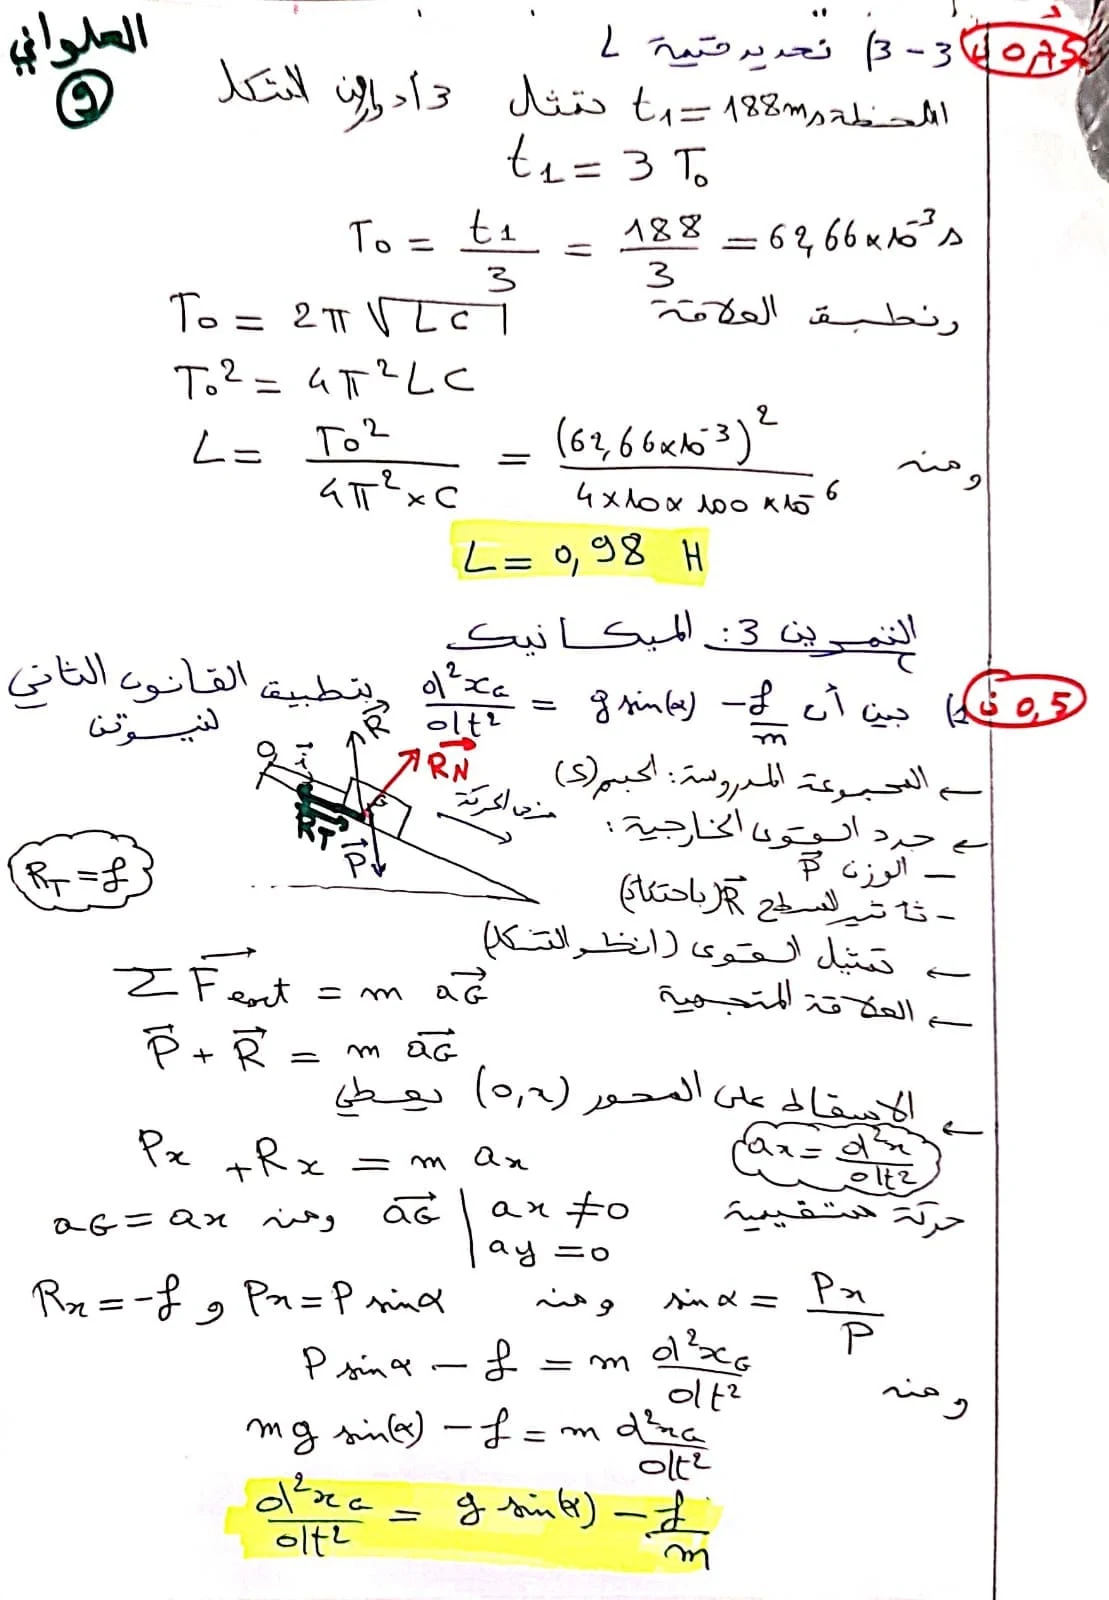 العلواني
9
0,75 ن
3-3) تحديد قيمة L
اللحظة t₁ = 188ms تمثل 3 أدوار (انظر الشكل
t₁ = 3 T₀
T₀ = t₁/3 = 188/3 = 62,66×10⁻³ s
ونطبق العلاقة T₀ = 2π √LC
T₀² = 4π² LC
ومنه L = T₀²/4π²×C = (62,66×10⁻³)²/4×10×100×10⁻⁶
L = 0,98 H
التمرين 3: الميكانيك
0,5 ن
1) نبين أن d²x_G/dt² = g sin(α) - f/m بتطبيق القانون الثاني
لنيوتن
← المجموعة المدروسة: الجسم (S)
← جرد القوى الخارجية:
- الوزن P⃗
- تأثير السطح R⃗ (باحتكاك)
← تمثيل القوى (انظر الشكل)
O i⃗ R⃗ R_N⃗ G R_T⃗ P⃗
منحى الحركة
R_T = f
← العلاقة المتجهية
ΣF⃗ext = m a_G⃗
P⃗ + R⃗ = m a_G⃗
← الاسقاط على المحور (o,x) يعطي
Px + Rx = m ax
ax = d²x/dt²
حركة مستقيمية a_G⃗ | ax ≠ 0 ay = 0 ومنه a_G = ax
sin α = Px/P ومنه Px = P sin α و Rx = -f
ومنه P sin α - f = m d²x_G/dt²
mg sin(α) - f = m d²x_G/dt²
d²x_G/dt² = g sin(α) - f/m